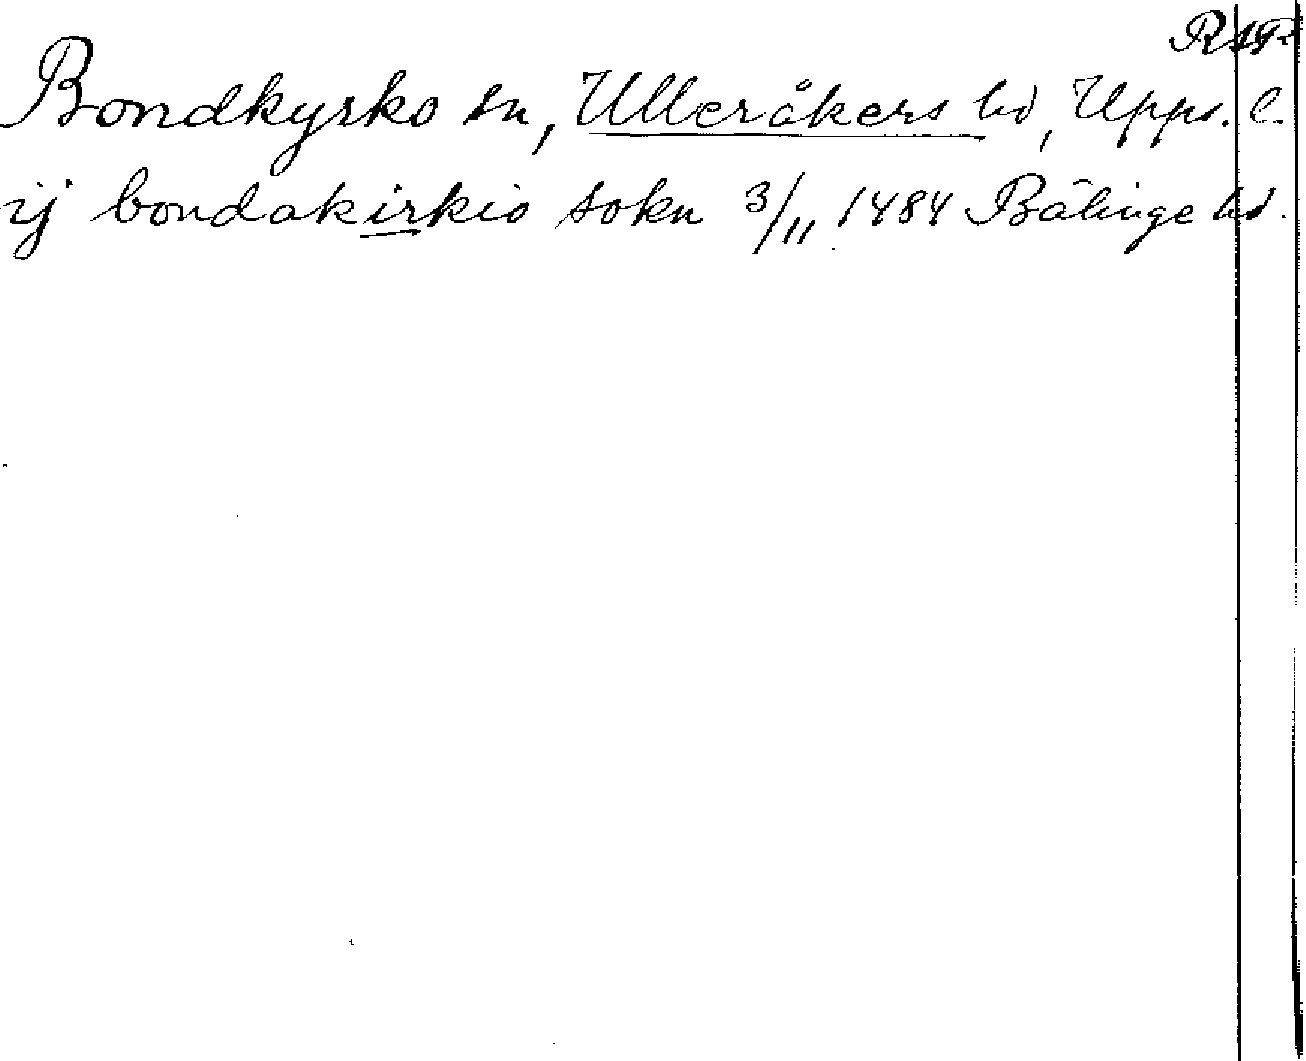 RAP
Bondkyrko sn, Ulleråkers hd, Upps. l.
ij bondakirkio sokn 3/11 1484 Bälinge hd.